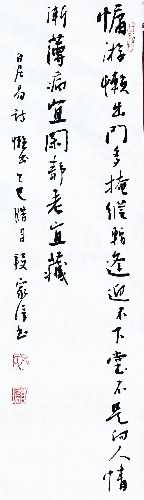 慵游懒出门多掩縱暫逢迎不下堂不是向人情
渐薄病宜閑静老宜藏
白居易诗懒出乙巳腊月段家